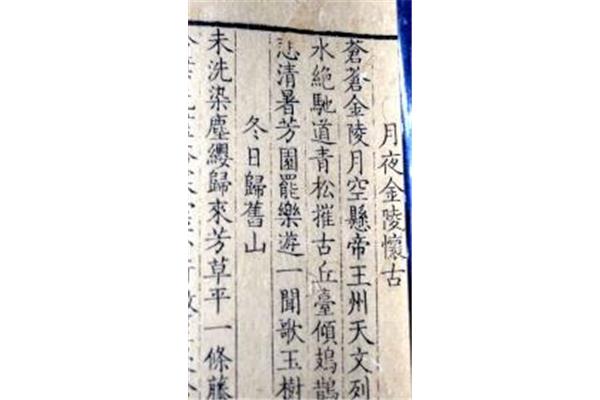 月夜金陵懷古
蒼蒼金陵月空懸帝王州天文列
水絶馳道青松摧古丘臺傾鳷鵲
悲清暑芳園罷樂遊一聞歌玉樹
冬日歸舊山
未洗染塵纓歸來芳草平一條藤